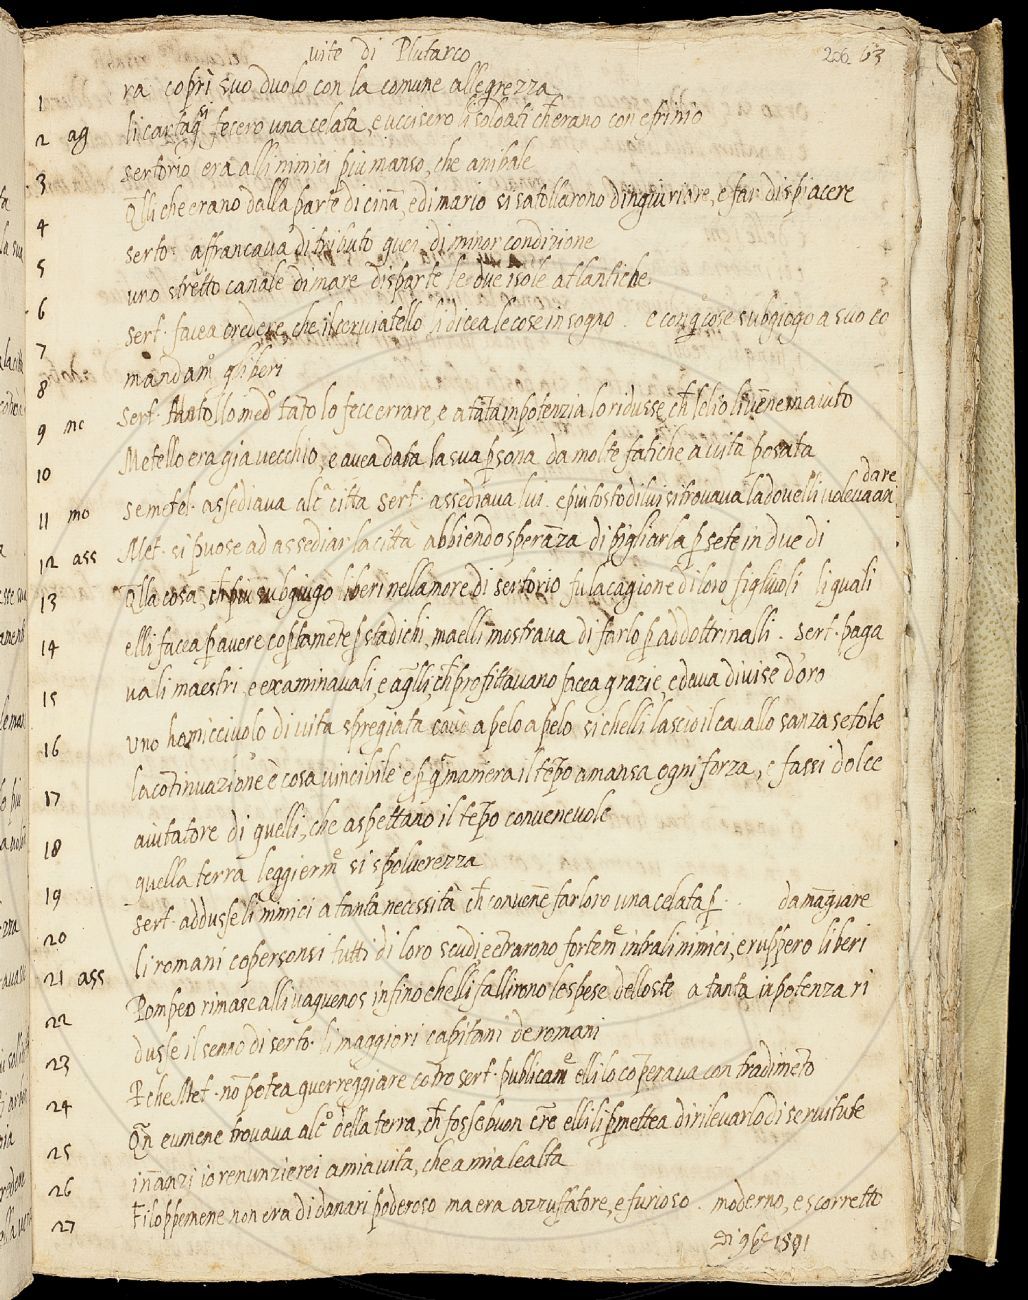 vite di Plutarco 206 63
1 ra coprì suo duolo con la comune allegrezza
2 ag li cartagsi fecero una celata, e uccisero li soldati ch̄ erano con efrinio
3 sertorio era alli nimici piu manso, che anibale
4 Q̄lli che erano dalla parte di cinā, e di mario si satollarono d'ingiuriare, e far dispiacere
5 serto· affrancava di tributo quei di minor condizione
6 uno stretto canale di mare disparte le due isole atlantiche
7 sert· facea credere, che il cerviatello li dicea le cose in sogno· e con q̄ cose subgiogo a suo co
8 mandam° gliberi
9 mc sert· tantollo med° tāto lo fece errare, e a tāta inpotenzia lo ridusse ch̄ lelio li vēne in aiuto
10 Metello era gia vecchio, e avea data la sua p̄sona da molte fatiche a vita posata
dare
11 mo se metel· assediava alc° citta sert· assediava lui· e piu tosto di lui si trovava la dov elli voleva an
12 ass Met· si puose ad assediar la città abbiendo sperāza di pigliarla p̄ sete in due di
13 Q̄lla cosa, ch̄ piu subgiugò liberi nell amore di sertorio fu la cagione di loro figliuoli li quali
14 elli facea p̄ avere copertamēte p̄ stadichi, ma elli mostrava di farlo p̄ addottrinalli· sert· paga
15 va li maestri, e examinavali, e a q̄lli, ch̄ profittavano facea grazie, e dava divise d'oro
16 uno homicciuolo di vita spregiata cavò a pelo a pelo si ch elli lasciò il cavallo sanza setole
17 la cōtinuazione è cosa vincibile e p̄ q̄ maniera il tēpo amansa ogni forza, e fassi dolce
18 aiutatore di quelli, che aspettano il tēpo convenevole
19 quella terra leggierme si spolverezza
20 sert· addusse li nimici a tanta necessità ch̄ convenē far loro una celata p̄ · da māgiare
21 ass li romani copersonsi tutti di loro scudi, e ētrarono forteme intra li nimici, e ruppero liberi
22 Pompeo rimase alli vaguenos infino che lli fallirono le spese dell oste a tanta inpotenza ri
23 dusse il senno di serto· li maggiori capitani de romani
24 P̄che Met· nō potea guerreggiare cōtro sert· publicame elli lo cōperava con tradimēto
25 Q̄n eumene trovava alc° della terra, ch̄ fosse buon cr̄e elli li p̄mettea di rilevarlo di servitute
26 inānzi io renunzierei a mia vita, che a mia lealta
27 Filoppemene non era di danari poderoso ma era azzuffatore, e furioso· moderno, e scorretto
Di 9bre 1591